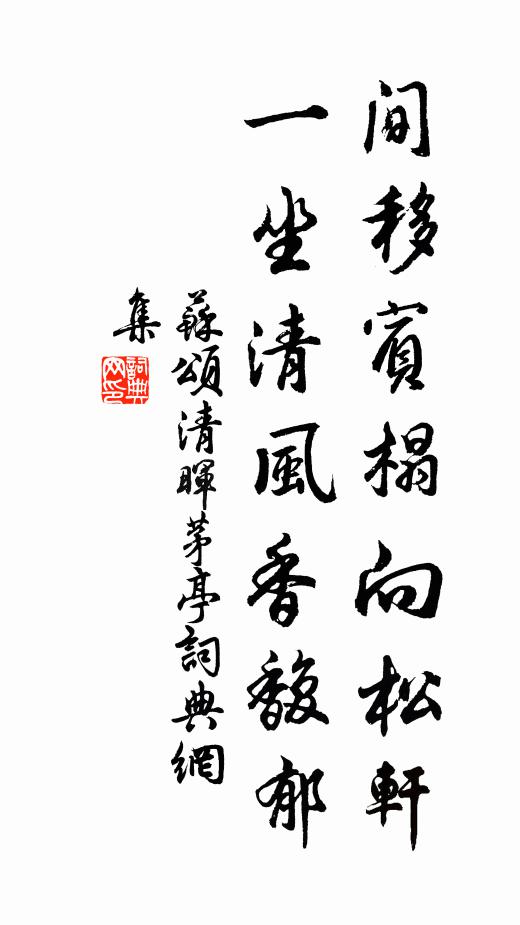 間移賓榻向松軒
一坐清風香馥郁
蘇頌清暉茅亭詞典網
集
詞典网印